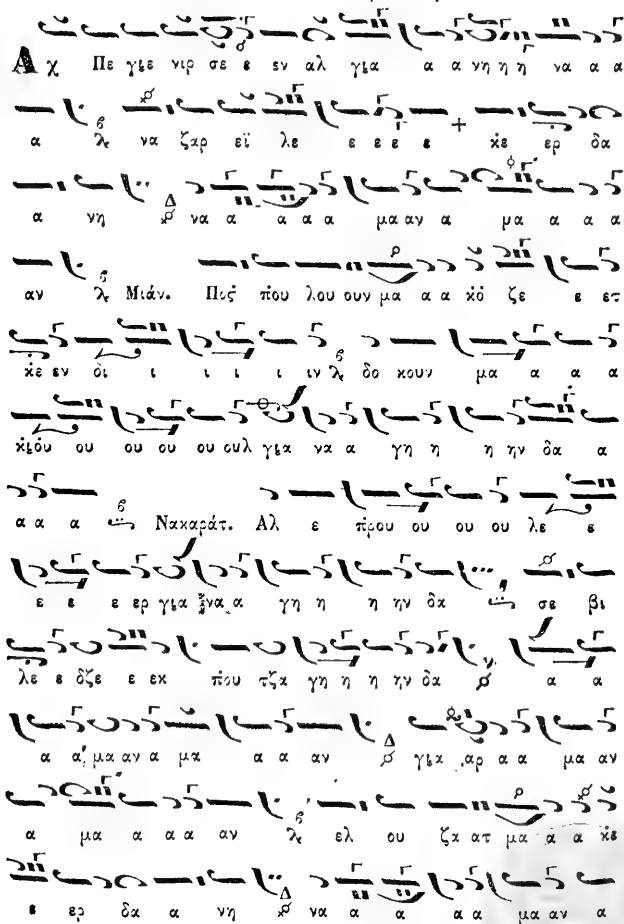 Αχ Πε γιε νιρ σε ε εν αλ για α α νη η η να α α
α να ζαρ εϊ λε ε ε ε ε + κε ερ δα
α νη Δ να α α α α μα αν α μα α α α
αν Μιάν. Πος που λου ουν μα α α κό ζε ε ετ
κε εν δι ι ι ι ι ιν δο κουν μα α α α
κιόυ ου ου ου ου ουλ για να α γη η η ην δα α
α α α Νακαράτ. Αλ ε πρου ου ου ου ου λε ε
ε ε ε ερ για να α γη η η ην δα σε βι
λε ε δζε ε εκ που τζα γη η η ην δα α α
α α μα αν α μα α α αν Δ για αρ α α μα αν
α μα α α α αν ελ ου ζα ατ μα α α κε
ε ερ δα α νη Δ να α α α α μα αν α